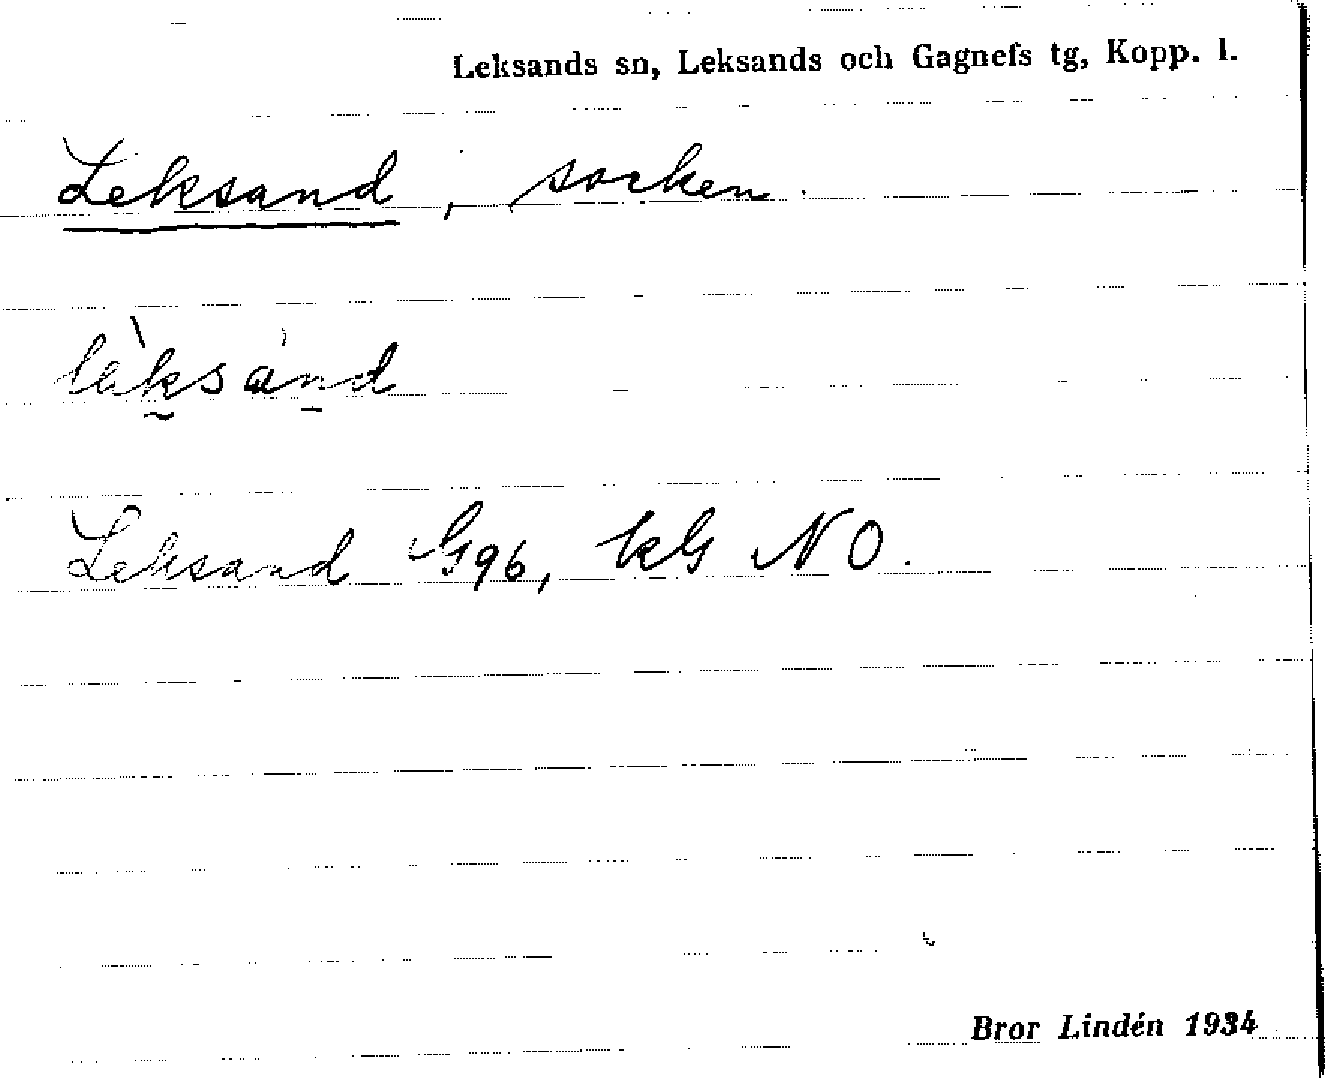 Leksands sn, Leksands och Gagnefs tg, Kopp. l.
Leksand, socken.
Leksand G96, kG NO.
Bror Lindén 1934